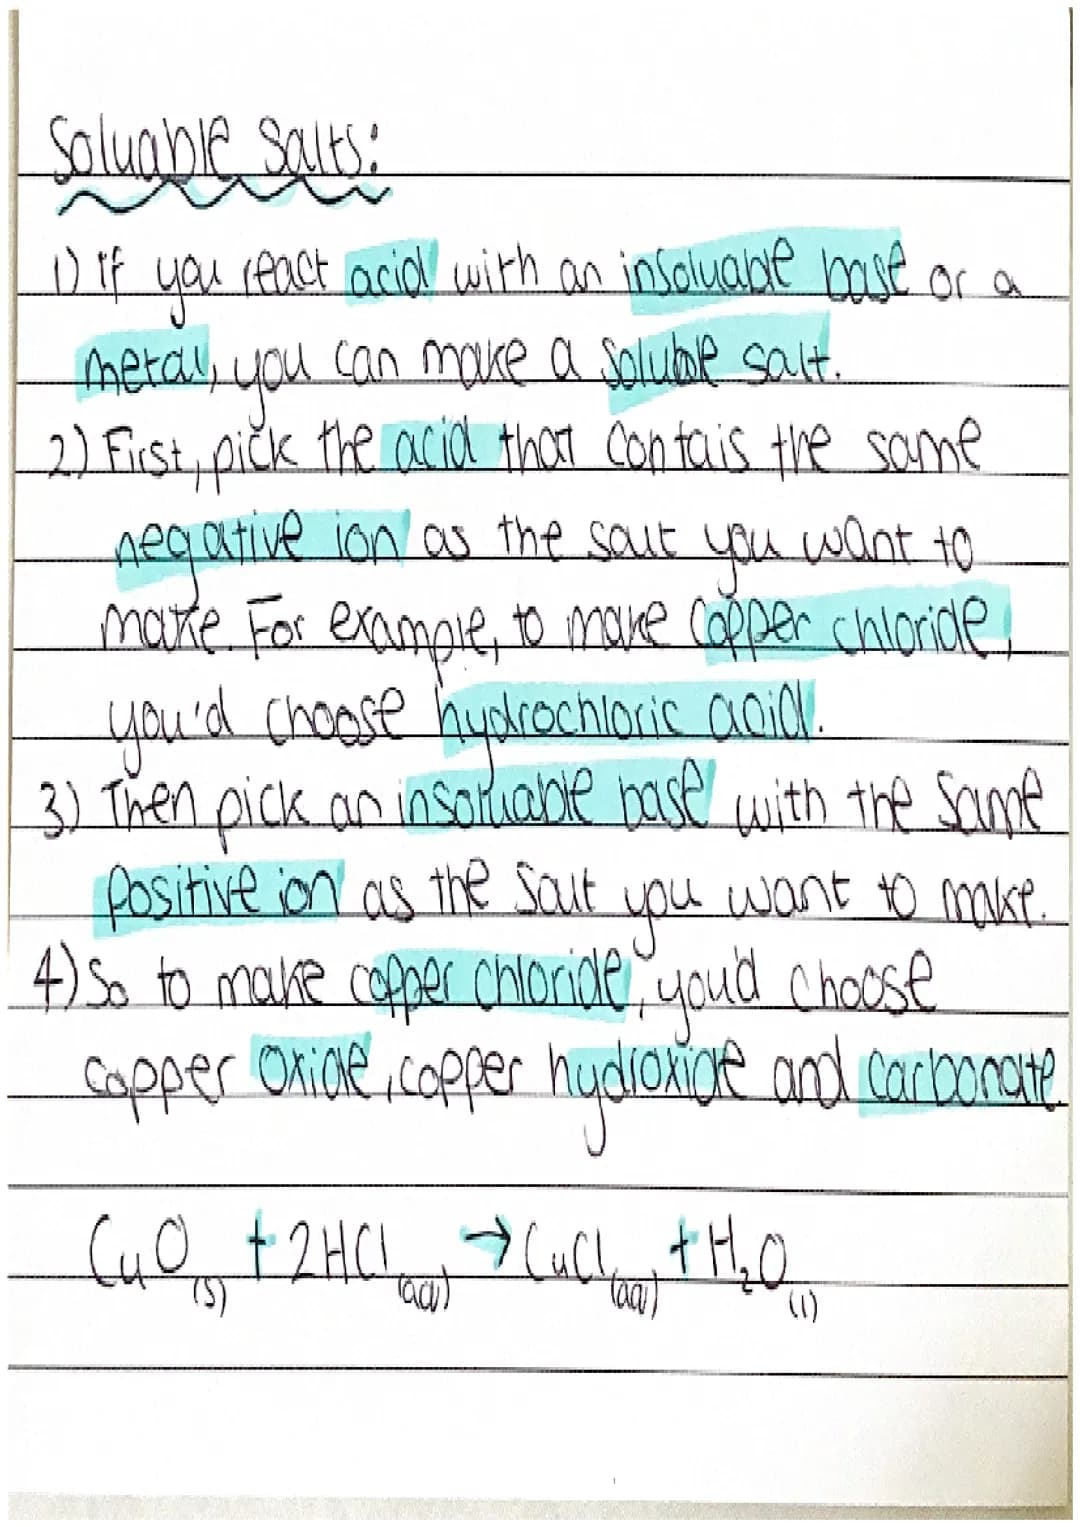 Soluable Salts:
1) If you react acid with an insoluable base or a
metal, you can make a soluble salt.
2) First, pick the acid that contais the same
negative ion as the salt you want to
make. For example, to make copper chloride,
you'd choose hydrochloric acid.
3) Then pick an insoluable base with the same
positive ion as the salt you want to make.
4) So to make copper chloride, you'd choose
copper oxide, copper hydroxide and carbonate.
CuO(s) + 2HCl(aq) → CuCl(aq) + H₂O(l)